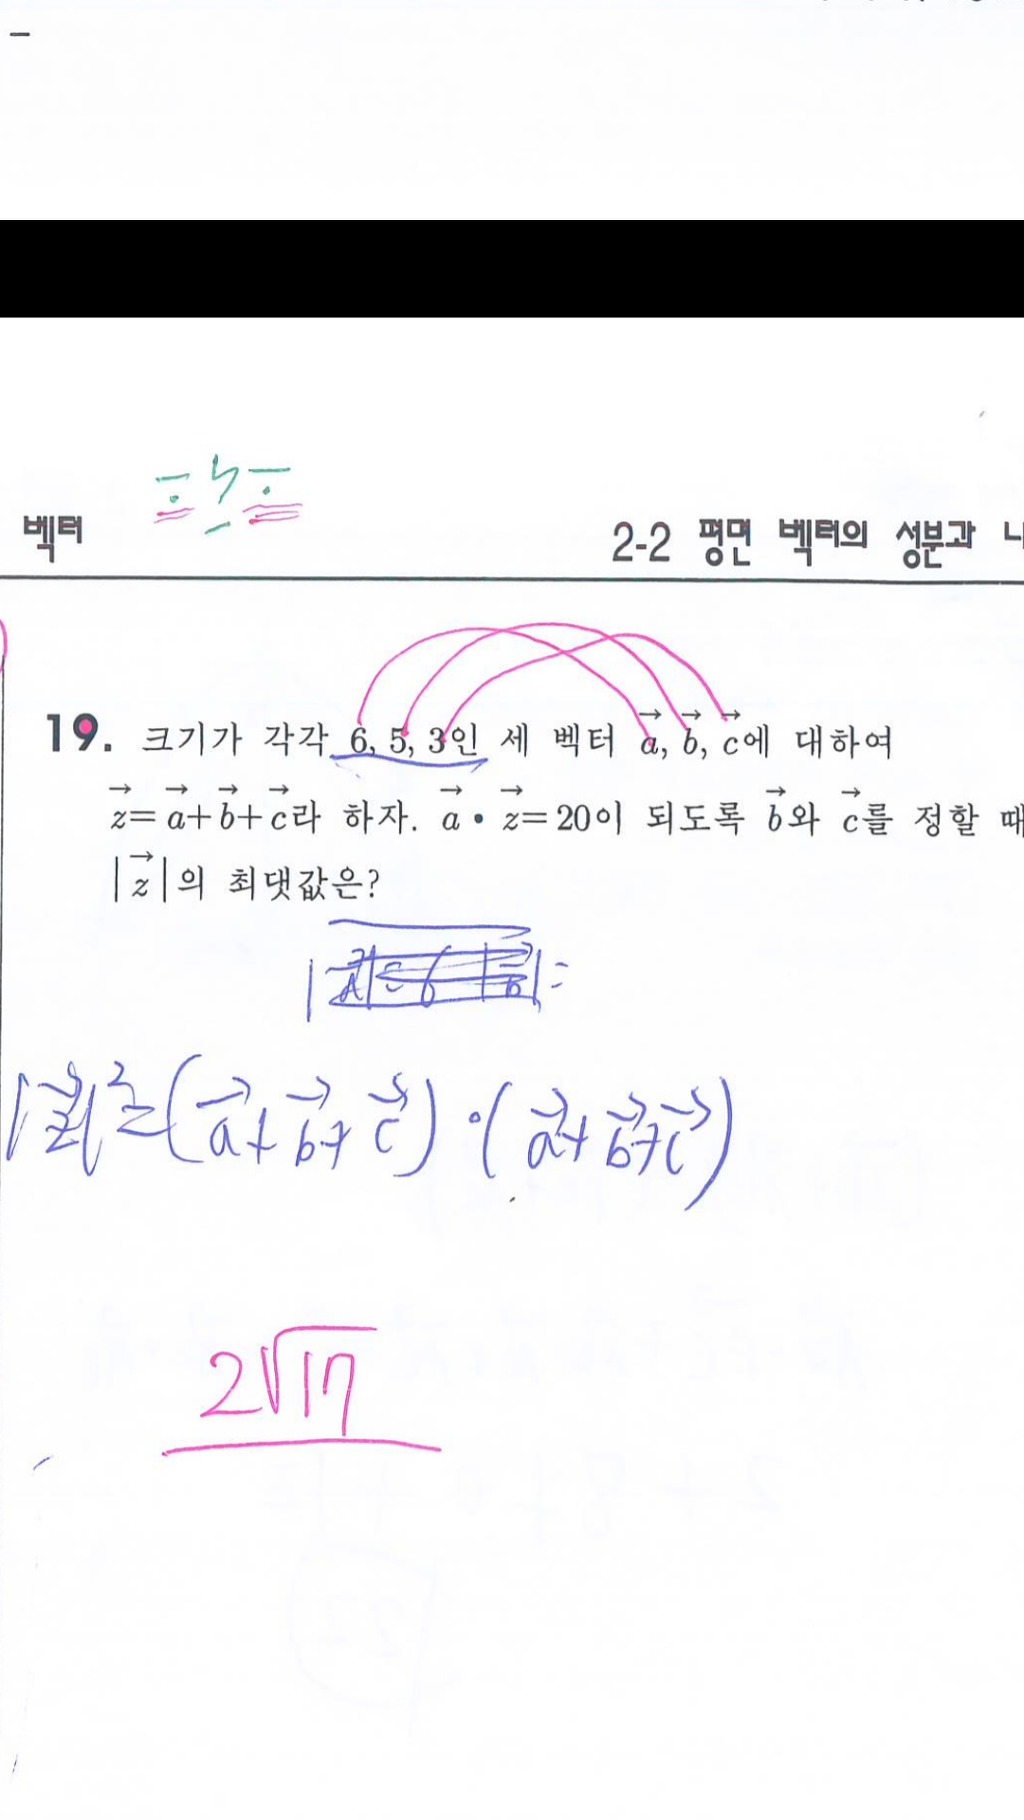 벡터
2-2 평면 벡터의 성분과 내
19. 크기가 각각 6, 5, 3인 세 벡터 a⃗, b⃗, c⃗에 대하여
z⃗=a⃗+b⃗+c⃗라 하자. a⃗・z⃗=20이 되도록 b⃗와 c⃗를 정할 때
|z⃗|의 최댓값은?
|z⃗|²=(a⃗+b⃗+c⃗)・(a⃗+b⃗+c⃗)
2√17